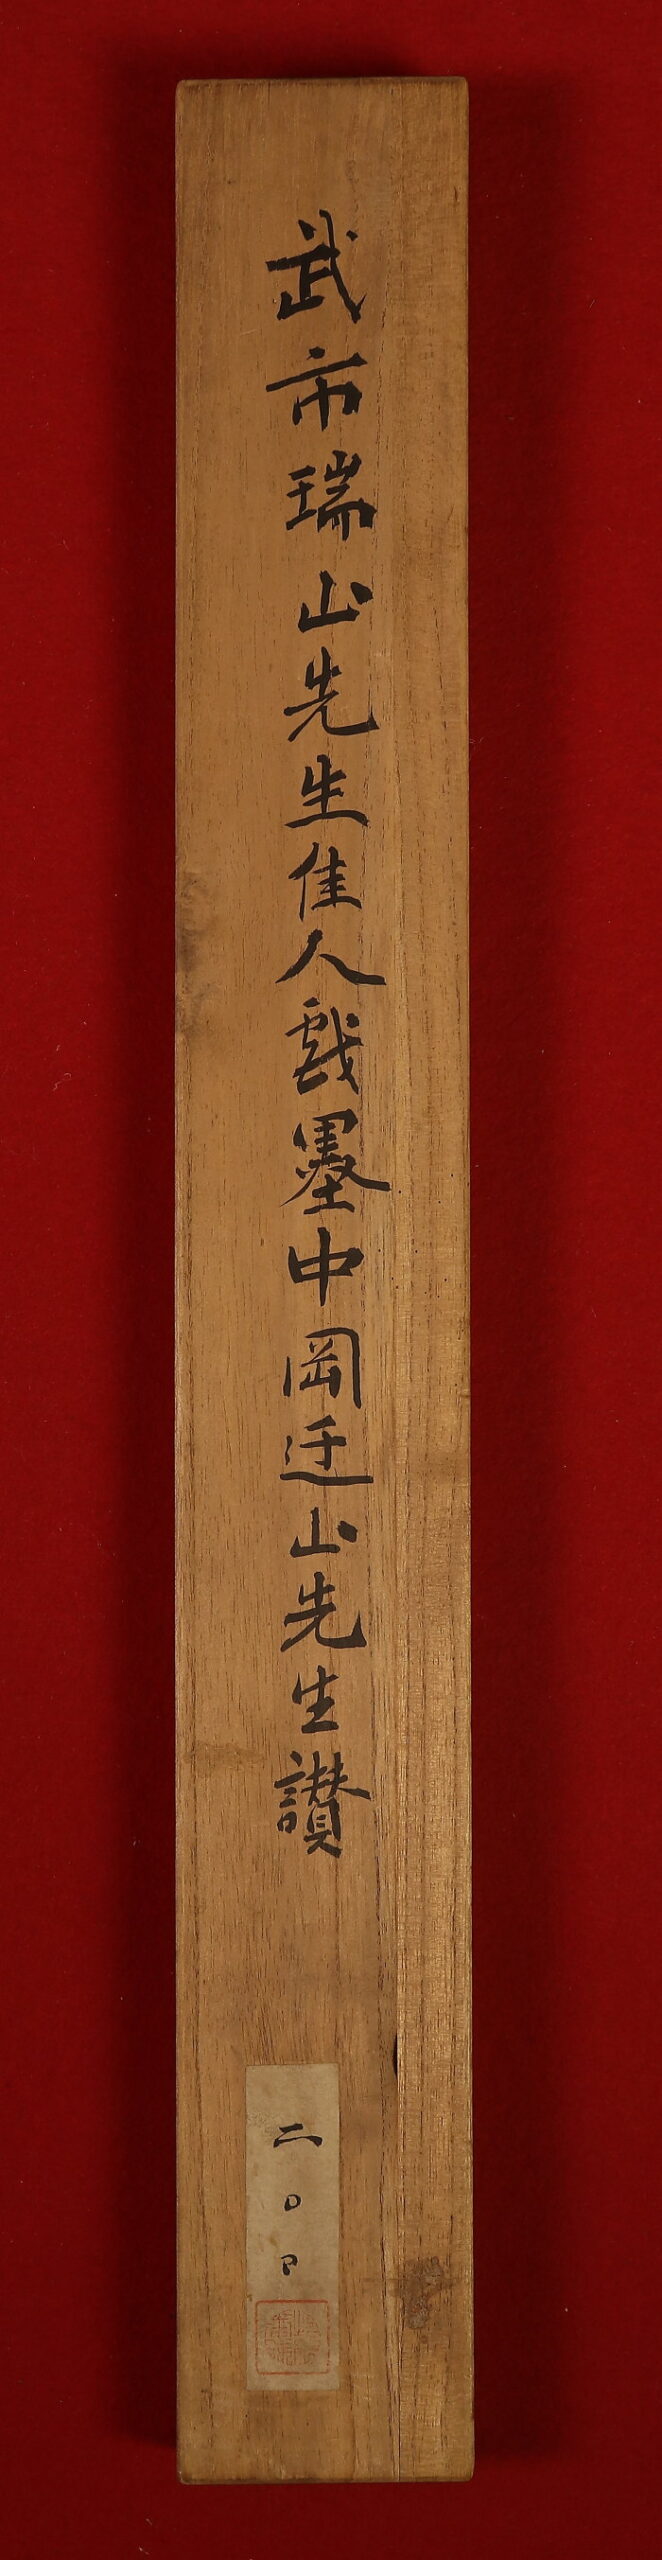 武市瑞山先生佳人戯墨中岡迂山先生讃
二〇